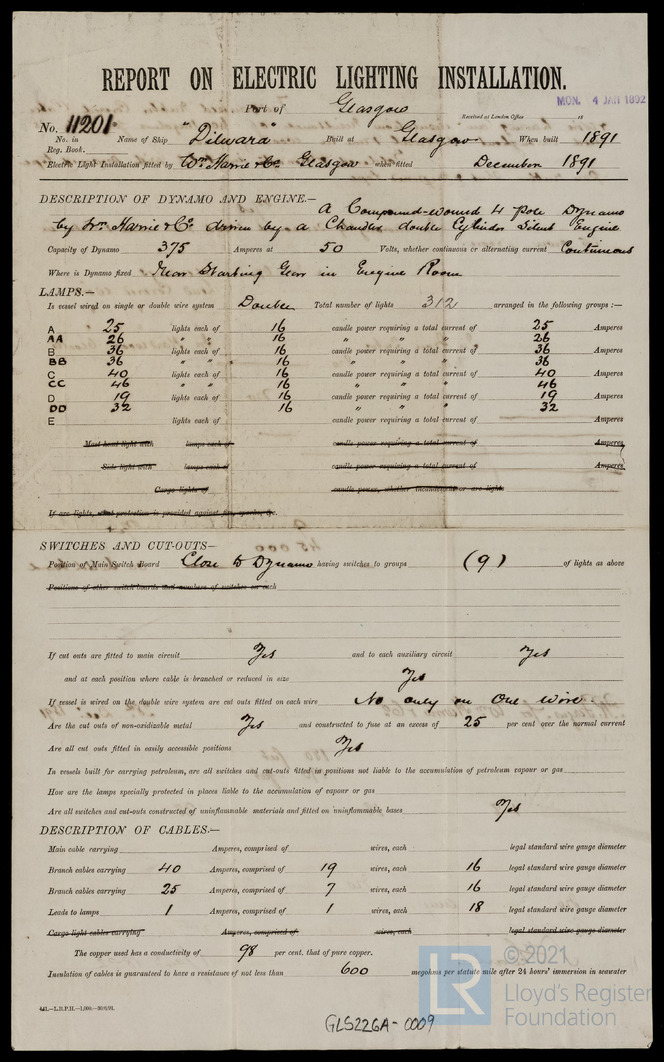 REPORT ON ELECTRIC LIGHTING INSTALLATION.
MON. 4 JAN 1892
Port of Glasgow
Received at London Office 18
No. 11201
No. in Reg. Book. Name of Ship "Dilwara" Built at Glasgow When built 1891
Electric Light Installation fitted by Wm Harvie & Co Glasgow when fitted December 1891
DESCRIPTION OF DYNAMO AND ENGINE.— A Compound-wound 4 pole Dynamo
by Wm Harvie & Co driven by a Chandler double Cylinder Silent Engine
Capacity of Dynamo 375 Amperes at 50 Volts, whether continuous or alternating current Continuous
Where is Dynamo fixed Near Starting Gear in Engine Room
LAMPS.—
Is vessel wired on single or double wire system Double Total number of lights 312 arranged in the following groups :—
A 25 lights each of 16 candle power requiring a total current of 25 Amperes
AA 26 " " 16 " " " 26
B 36 lights each of 16 candle power requiring a total current of 36 Amperes
BB 36 " " 16 " " " 36
C 40 lights each of 16 candle power requiring a total current of 40 Amperes
CC 46 " " 16 " " " 46
D 19 lights each of 16 candle power requiring a total current of 19 Amperes
DD 32 " " 16 " " " 32
E lights each of candle power requiring a total current of Amperes
Mast head light with lamps each of candle power requiring a total current of Amperes
Side light with lamps each of candle power requiring a total current of Amperes
Cargo lights of candle power, whether incandescent or arc lights
If arc lights, what protection is provided against fire, sparks, &c.
SWITCHES AND CUT-OUTS—
Position of Main Switch Board Close to Dynamo having switches to groups (9) of lights as above
Positions of other switch boards and numbers of switches on each
If cut outs are fitted to main circuit Yes and to each auxiliary circuit Yes
and at each position where cable is branched or reduced in size Yes
If vessel is wired on the double wire system are cut outs fitted on each wire No only on One wire.
Are the cut outs of non-oxidizable metal Yes and constructed to fuse at an excess of 25 per cent over the normal current
Are all cut outs fitted in easily accessible positions Yes
In vessels built for carrying petroleum, are all switches and cut-outs fitted in positions not liable to the accumulation of petroleum vapour or gas
How are the lamps specially protected in places liable to the accumulation of vapour or gas
Are all switches and cut-outs constructed of uninflammable materials and fitted on uninflammable bases Yes
DESCRIPTION OF CABLES.—
Main cable carrying Amperes, comprised of wires, each legal standard wire gauge diameter
Branch cables carrying 40 Amperes, comprised of 19 wires, each 16 legal standard wire gauge diameter
Branch cables carrying 25 Amperes, comprised of 7 wires, each 16 legal standard wire gauge diameter
Leads to lamps 1 Amperes, comprised of 1 wires, each 18 legal standard wire gauge diameter
Cargo light cables carrying Amperes, comprised of wires, each legal standard wire gauge diameter
The copper used has a conductivity of 98 per cent. that of pure copper.
Insulation of cables is guaranteed to have a resistance of not less than 600 megohms per statute mile after 24 hours' immersion in seawater
GLS226A-0009
© 2021
LR Lloyd's Register
Foundation